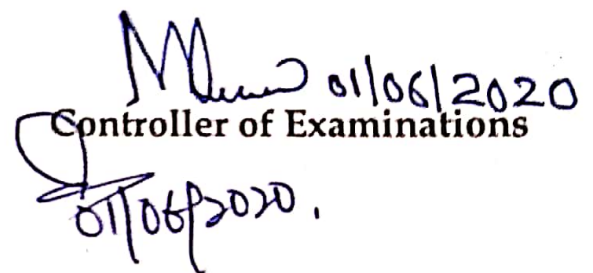 01/06/2020
Controller of Examinations
01/06/2020.